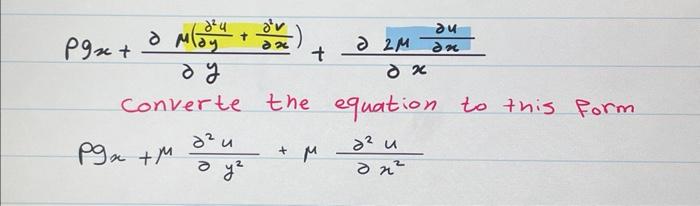 ρgx + ∂ μ(∂²u/∂y + ∂²v/∂x)/∂y + ∂ 2μ ∂u/∂x/∂x
converte the equation to this form
ρgx + μ ∂²u/∂y² + μ ∂²u/∂x²